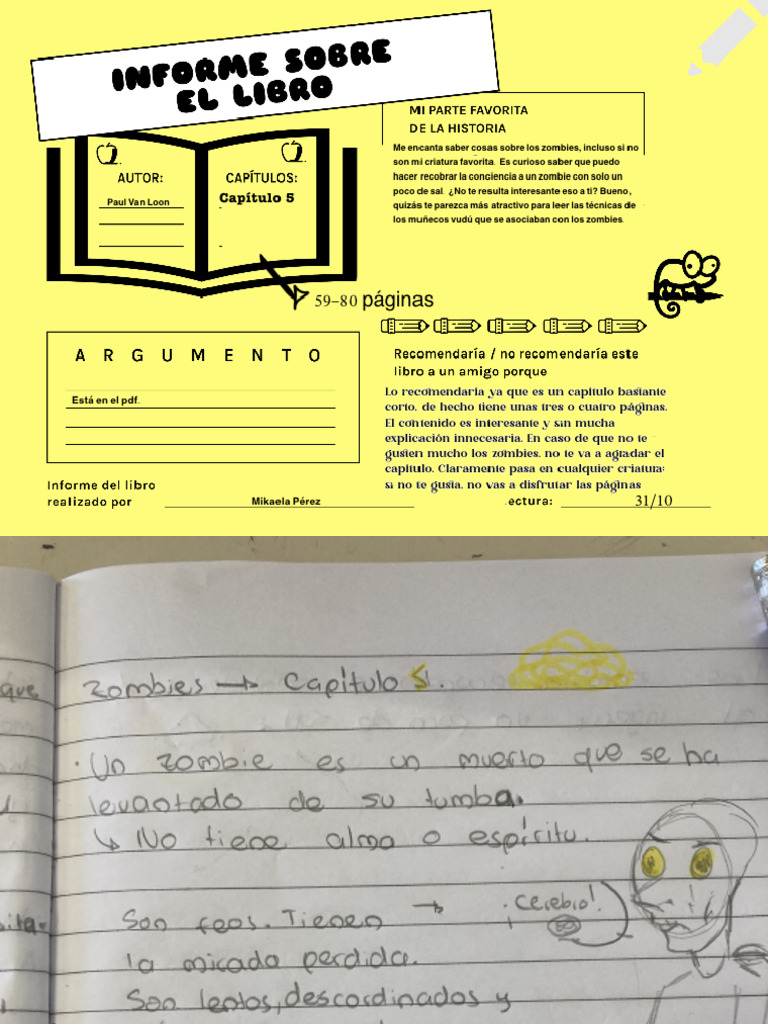 INFORME SOBRE
EL LIBRO
AUTOR:
Paul Van Loon
CAPÍTULOS:
Capítulo 5
59–80 páginas
MI PARTE FAVORITA
DE LA HISTORIA
Me encanta saber cosas sobre los zombies, incluso si no
son mi criatura favorita. Es curioso saber que puedo
hacer recobrar la conciencia a un zombie con solo un
poco de sal. ¿No te resulta interesante eso a ti? Bueno,
quizás te parezca más atractivo para leer las técnicas de
los muñecos vudú que se asociaban con los zombies.
ARGUMENTO
Está en el pdf.
Recomendaría / no recomendaría este
libro a un amigo porque
Lo recomendaría ya que es un capítulo bastante
corto, de hecho tiene unas tres o cuatro páginas.
El contenido es interesante y sin mucha
explicación innecesaria. En caso de que no te
gusten mucho los zombies, no te va a agradar el
capítulo. Claramente pasa en cualquier criatura:
si no te gusta, no vas a disfrutar las páginas
Informe del libro
realizado por
Mikaela Pérez
ectura:
31/10
que
Zombies → Capítulo 5.
· Un zombie es un muerto que se ha
levantado de su tumba.
↳ No tiene alma o espíritu.
Son feos. Tienen →
· Cerebro!
la mirada perdida.
Son lentos, descordinados y